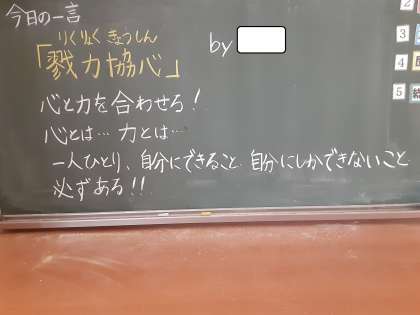 今日の一言
りくりょく きょうしん
「戮力協心」 by
心と力を合わせろ!
心とは… 力とは…
一人ひとり、自分にできること、自分にしかできないこと
必ずある!!
2
3
4
5